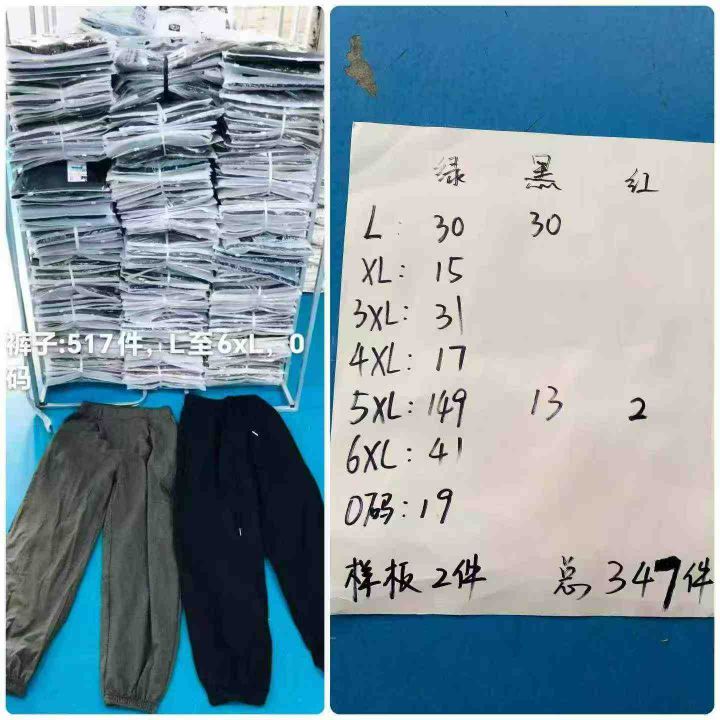 裤子:517件，L至6xL，0
码
绿 黑 红
L: 30 30
XL: 15
3XL: 31
4XL: 17
5XL: 149 13 2
6XL: 41
0码: 19
样板2件 总347件